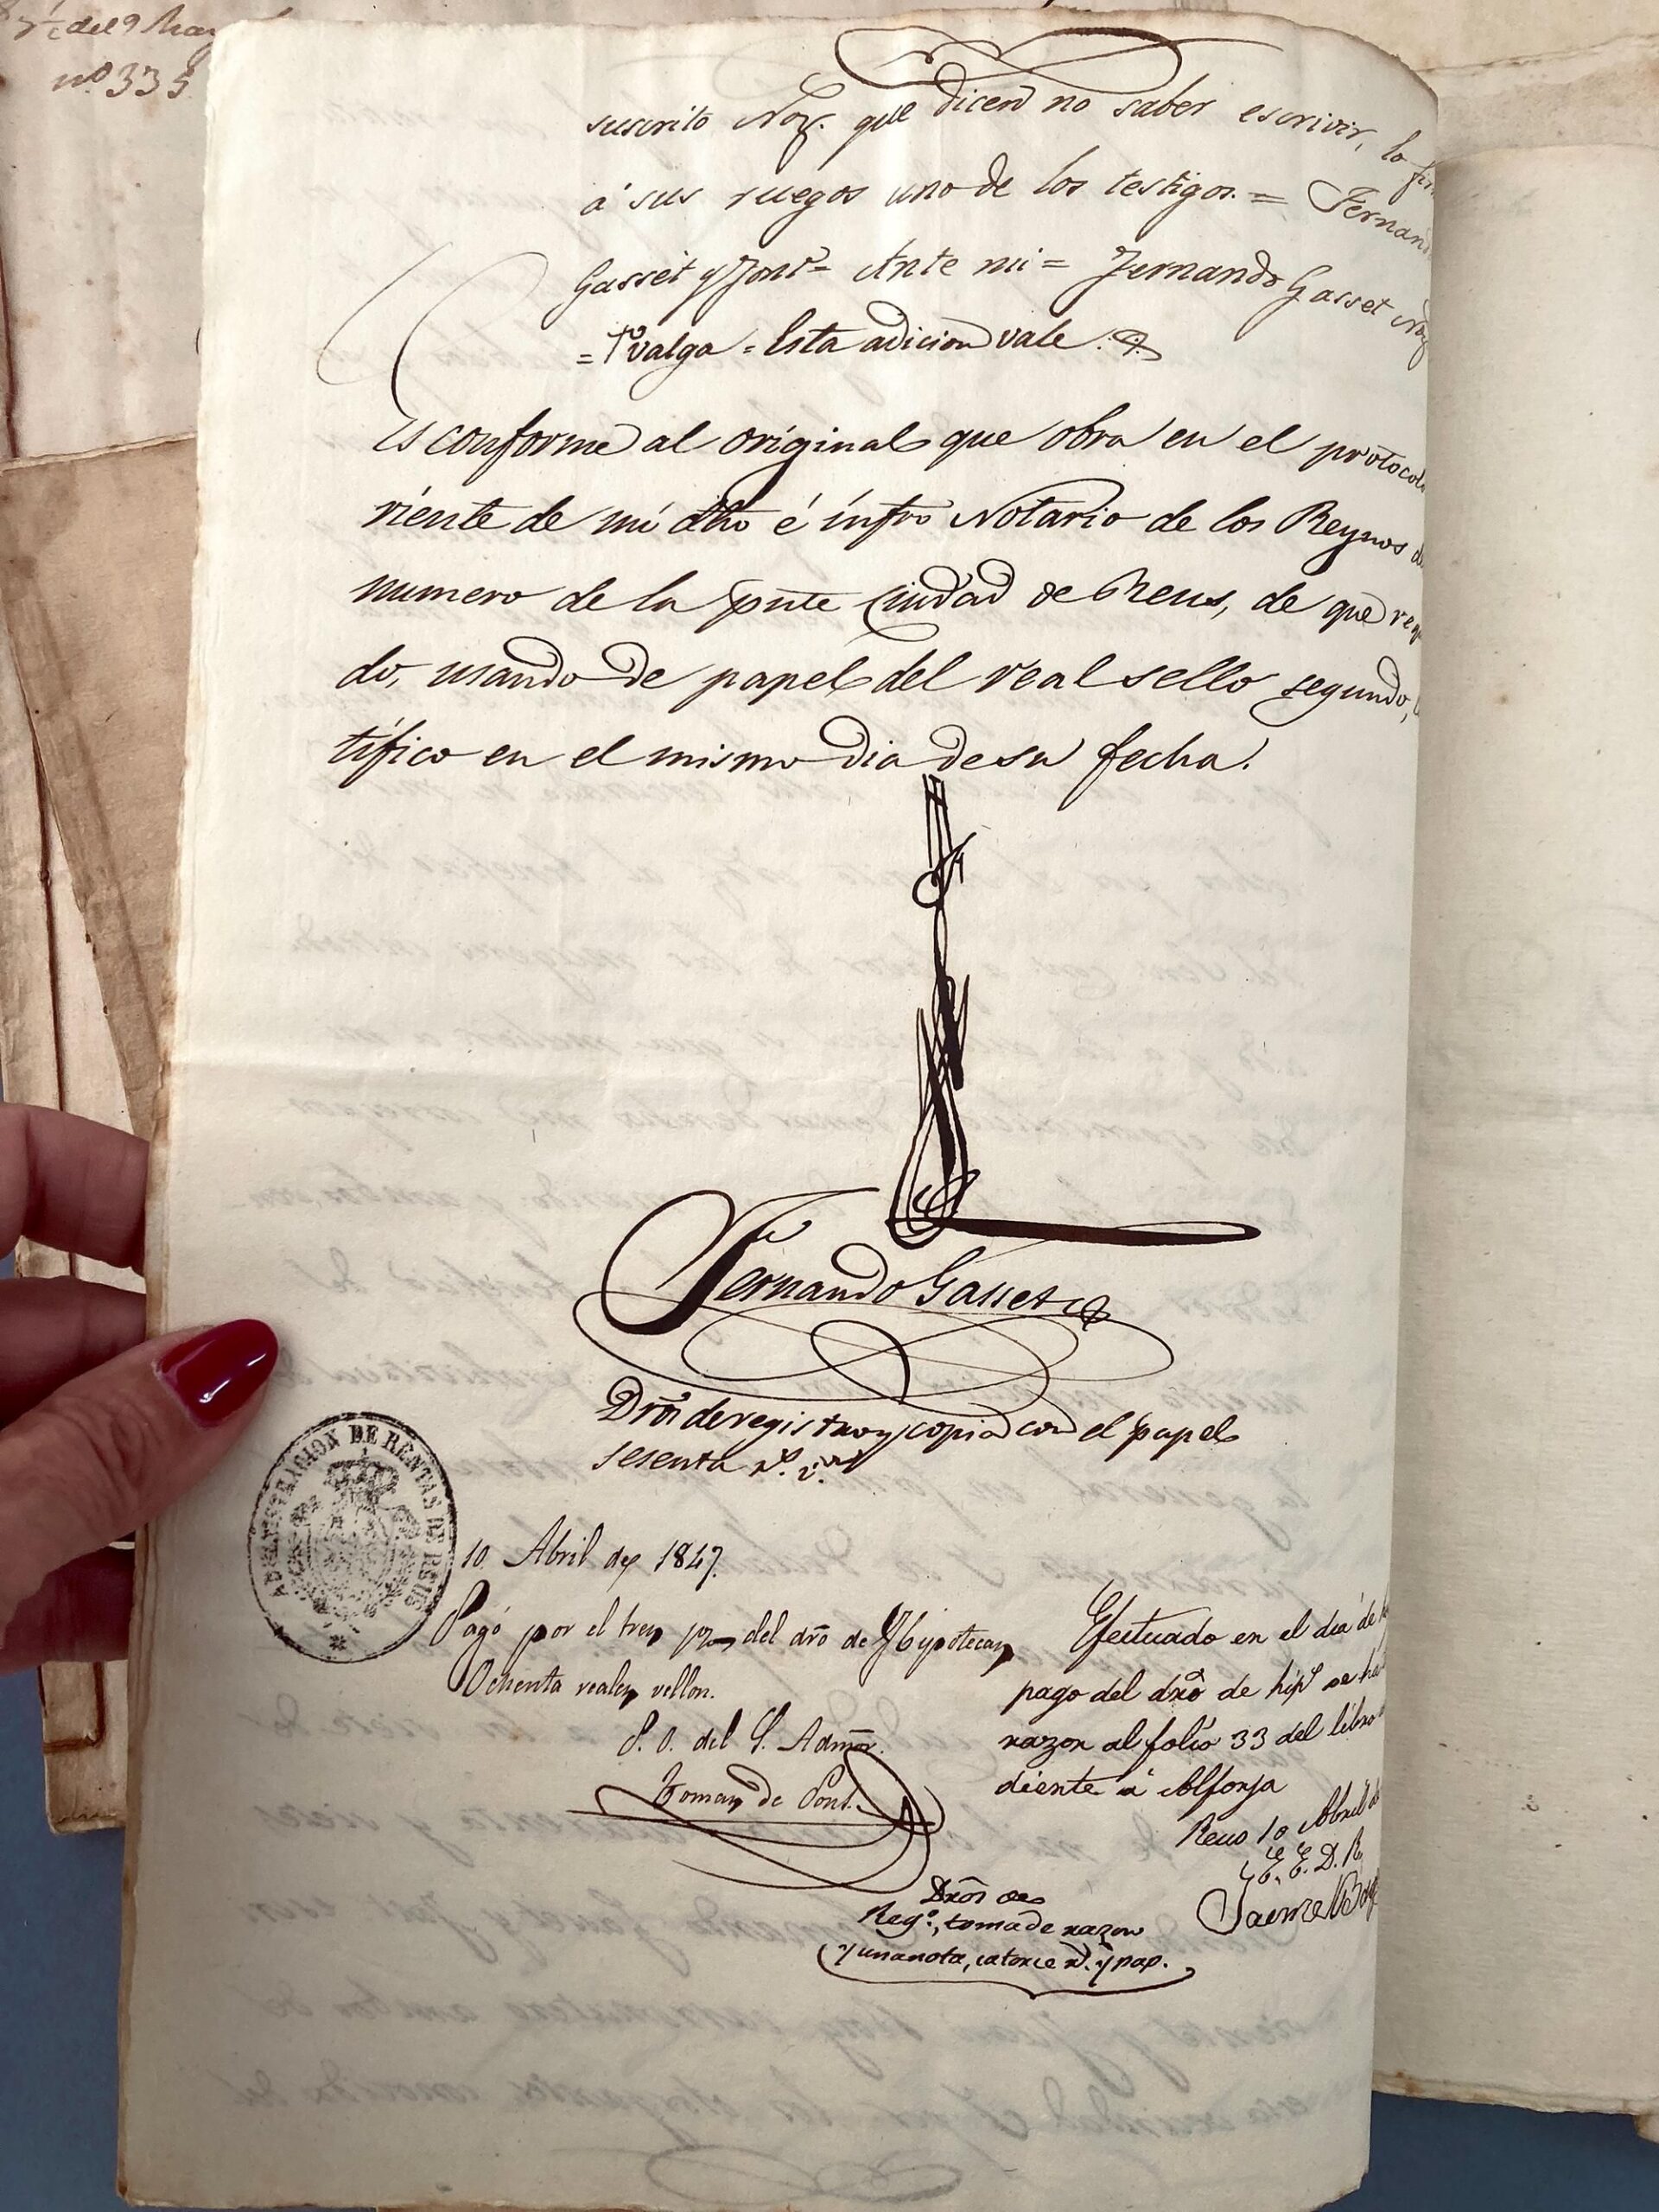 del 9 May
nº 335
suscrito Noț. que dicen no saber escrivir, lo fir
á sus ruegos uno de los testigos. = Fernand
Gasset y Font = Ante mi = Fernando Gasset Not
= valga = Esta adicion vale.
Es conforme al original que obra en el protocol
riente de mi dho é infro Notario de los Reynos d
numero de la pnte Ciudad de Reus, de que req
do, usando de papel del real sello segundo,
tífico en el mismo dia de su fecha.
Fernando Gasset
Dros de registro y copia con el papel
sesenta rs. vn
ADMINISTRACION DE RENTAS DE REUS
10 Abril de 1847.
Pagó por el tres p% del dro de Hypotecas
Ochenta reales vellon.
P. O. del S. Admor.
Tomas de Pont.
Efectuado en el dia de h
pago del dro de hips se ha
razon al folio 33 del libro
diente á Alforja
Reus 10 Abril de
E. E. D. R.
Jaime
Dros de
Rego., toma de razon
y una nota, catorce rs. y pap.